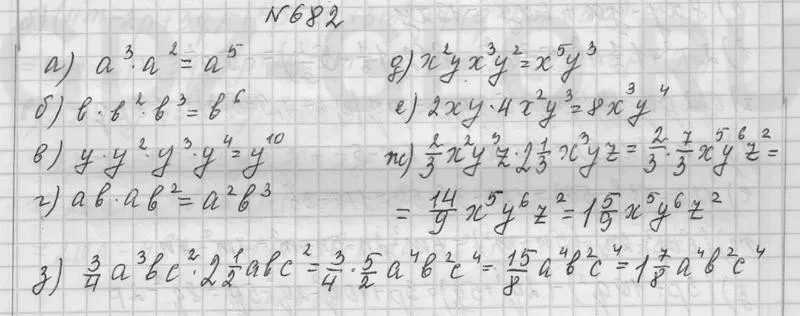 №682
а) a³·a²=a⁵
б) b·b²·b³=b⁶
в) y·y²·y³·y⁴=y¹⁰
г) ab·ab²=a²b³
д) x²y x³y²=x⁵y³
е) 2xy·4x²y³=8x³y⁴
ж) 2/3 x²y⁵z·2 1/3 x³yz = 2/3·7/3 x⁵y⁶z² =
= 14/9 x⁵y⁶z² = 1 5/9 x⁵y⁶z²
з) 3/4 a³bc²·2 1/2 abc² = 3/4·5/2 a⁴b²c⁴ = 15/8 a⁴b²c⁴ = 1 7/8 a⁴b²c⁴